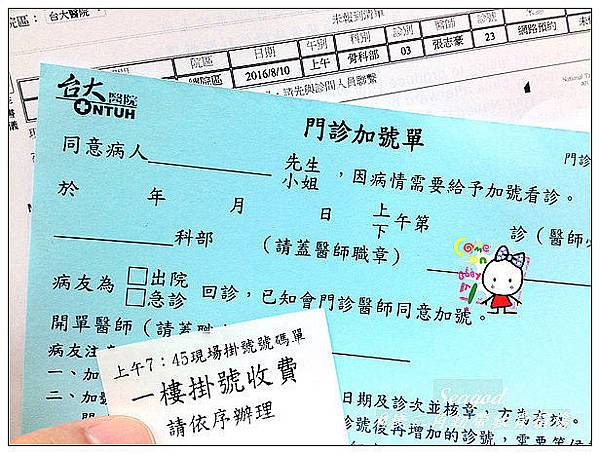 院區：台大醫院
未報到清單
院區 日期 午別 科別 診別 醫師 診號
2016/8/10 上午 骨科部 03 張志豪 23 網路預約
請先與診間人員聯繫
台大醫院
NTUH
門診加號單
門診
同意病人 先生 小姐 ，因病情需要給予加號看診。
於 年 月 日 上 下 午第 診（醫師
科部 （請蓋醫師職章）
Come on baby
病友為 □出院 □急診 回診，已知會門診醫師同意加號。
開單醫師（請蓋職
病友注意
一、加
二、加號
日期及診次並核章，方為有效。
後再增加的診號，需要等候
上午7：45現場掛號號碼單
一樓掛號收費
請依序辦理
Seagod